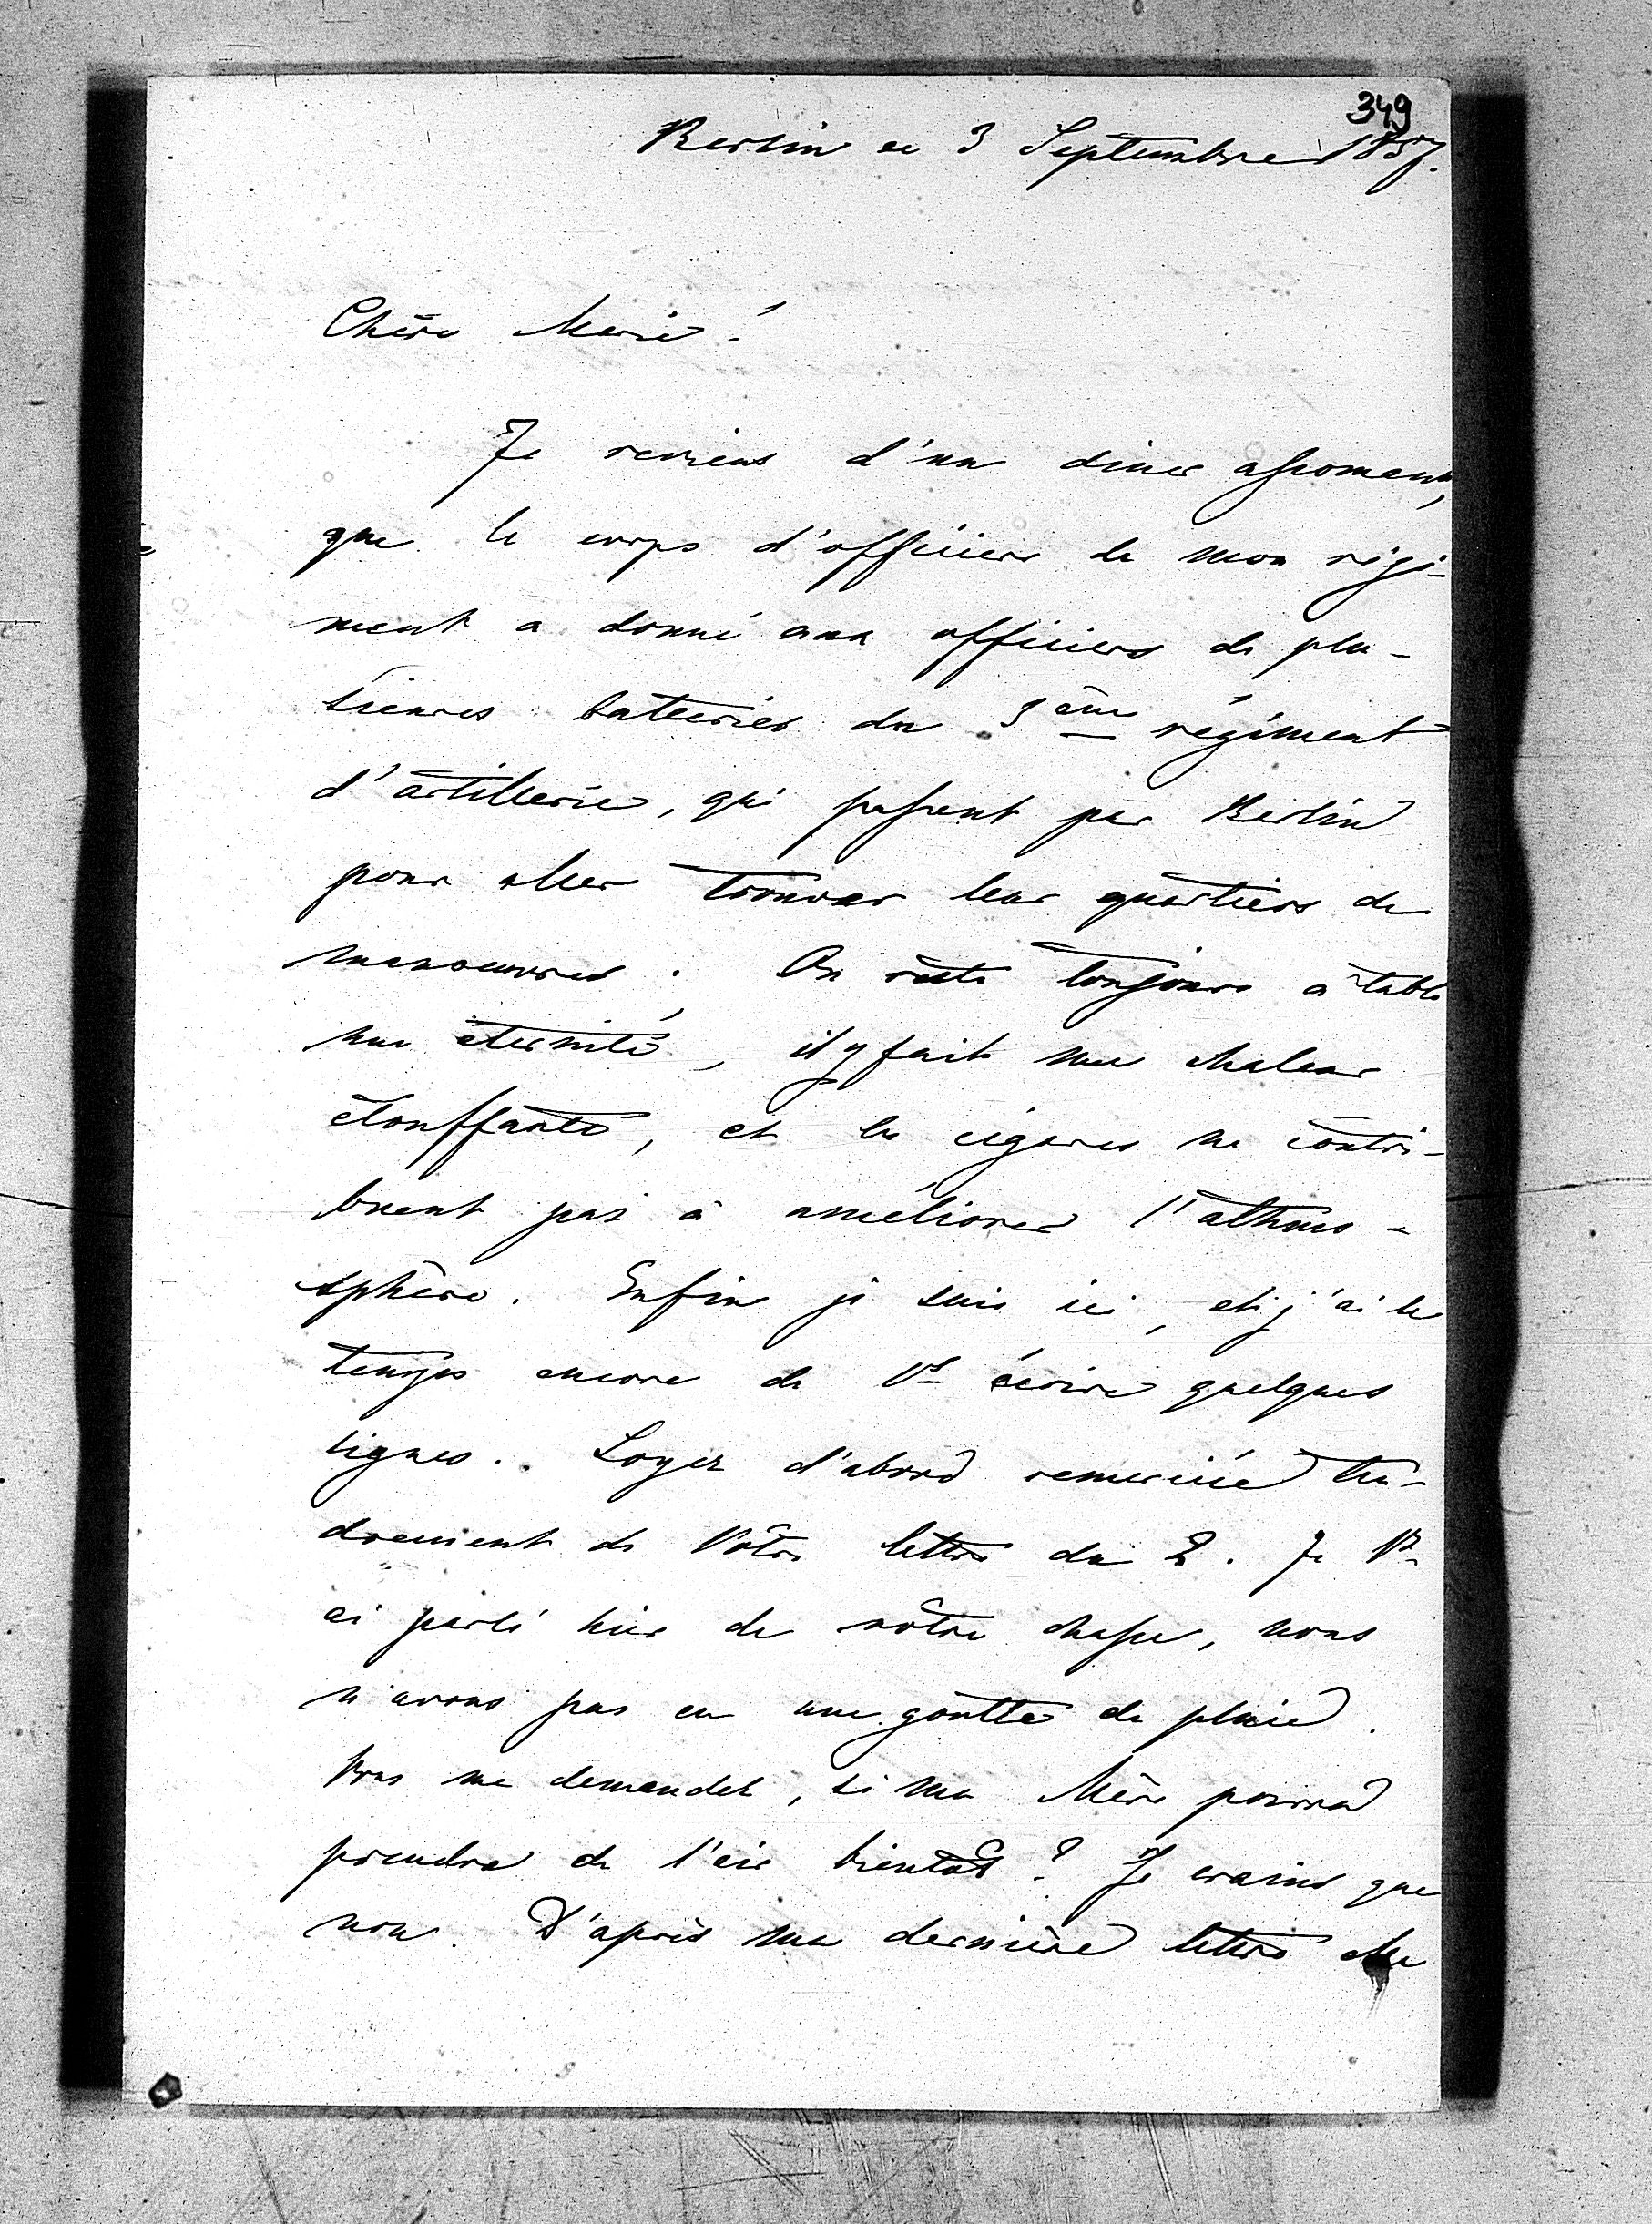 349
Berlin ce 3 Septembre 1857.
Chère Marie!
Je reviens d'un diner assomant,
que le corps d'officiers de mon régi-
ment a donné aux officiers de plu-
sieures batteries du 3ème régiment
d'artillerie, qui passent par Berlin
pour aller trouver leur quartiers de
manoeuvres. On reste toujours à table
une éternité, il y fait une chaleur
étouffante, et les cigares ne contri-
buent pas à améliorer l'athmo-
sphère. Enfin je suis ici, et j'ai le
temps encore de Vs écrire quelques
lignes. Soyez d'abord remerciée ten-
drement de Vôtre lettre du 2. Je Vs
ai parlé hier de nôtre chasse, nous
n'avons pas eu une goutte de pluie.
Vous me demandez, si ma Mère pourra
prendre de l'air bientôt? Je crains que
non. D'après ma dernière lettre Elle